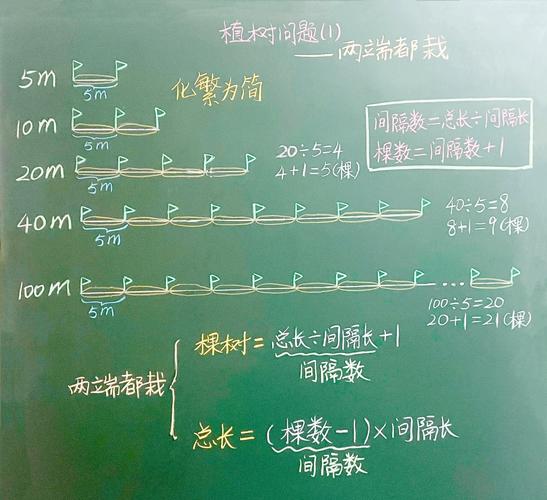 植树问题(1)
——两端都栽
5m
5m
化繁为简
10m
5m
间隔数=总长÷间隔长
棵数=间隔数+1
20m
5m
20÷5=4
4+1=5(棵)
40m
5m
40÷5=8
8+1=9(棵)
100m
5m
...
100÷5=20
20+1=21(棵)
两端都栽
棵树=总长÷间隔长+1
间隔数
总长=(棵数-1)×间隔长
间隔数